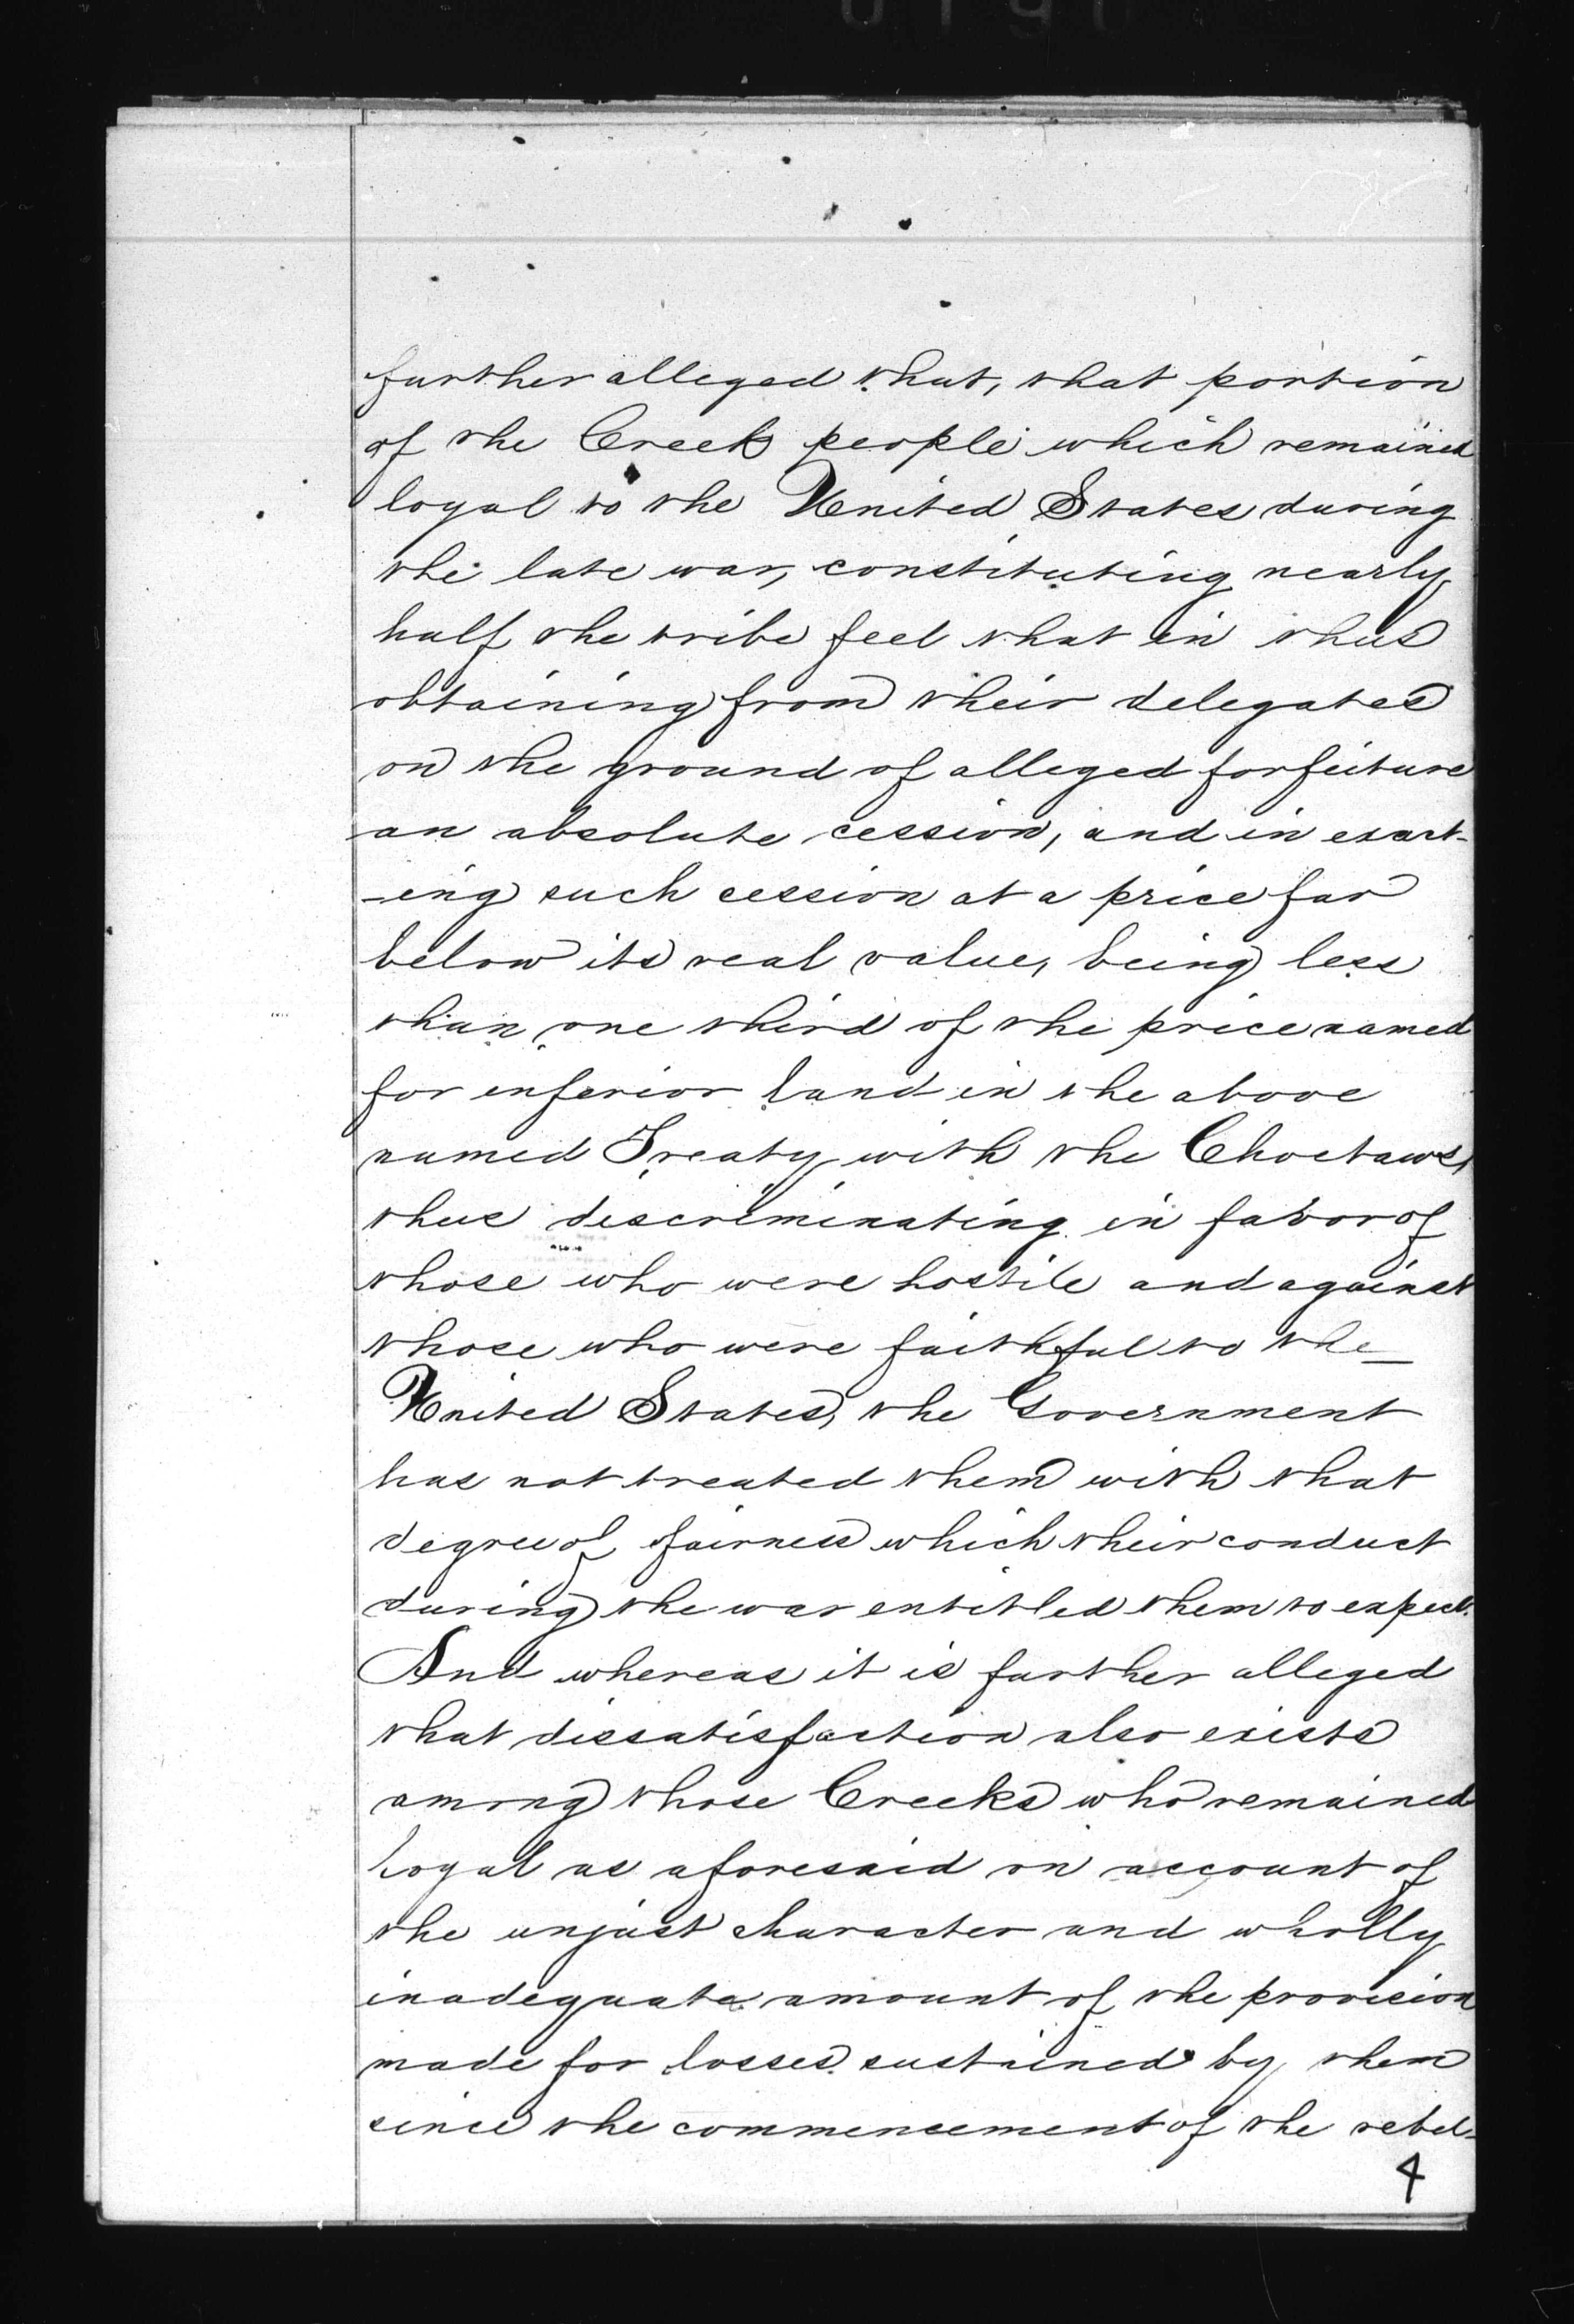 further alleged that, that portion
of the Creek people which remained
loyal to the United States during
the late war, constituting nearly
half the tribe feel that in thus
obtaining from their delegates
on the ground of alleged forfeiture
an absolute cession, and in exact-
-ing such cession at a price far
below its real value, being less
than one third of the price named
for inferior land in the above
named Treaty with the Choctaws,
thus discriminating in favor of
those who were hostile and against
those who were faithful to the
United States, the Government
has not treated them with that
degree of fairness which their conduct
during the war entitled them to expect.
And whereas it is further alleged
that dissatisfaction also exists
among those Creeks who remained
loyal as aforesaid on account of
the unjust character and wholly
inadequate amount of the provision
made for losses sustained by them
since the commencement of the rebel-
4